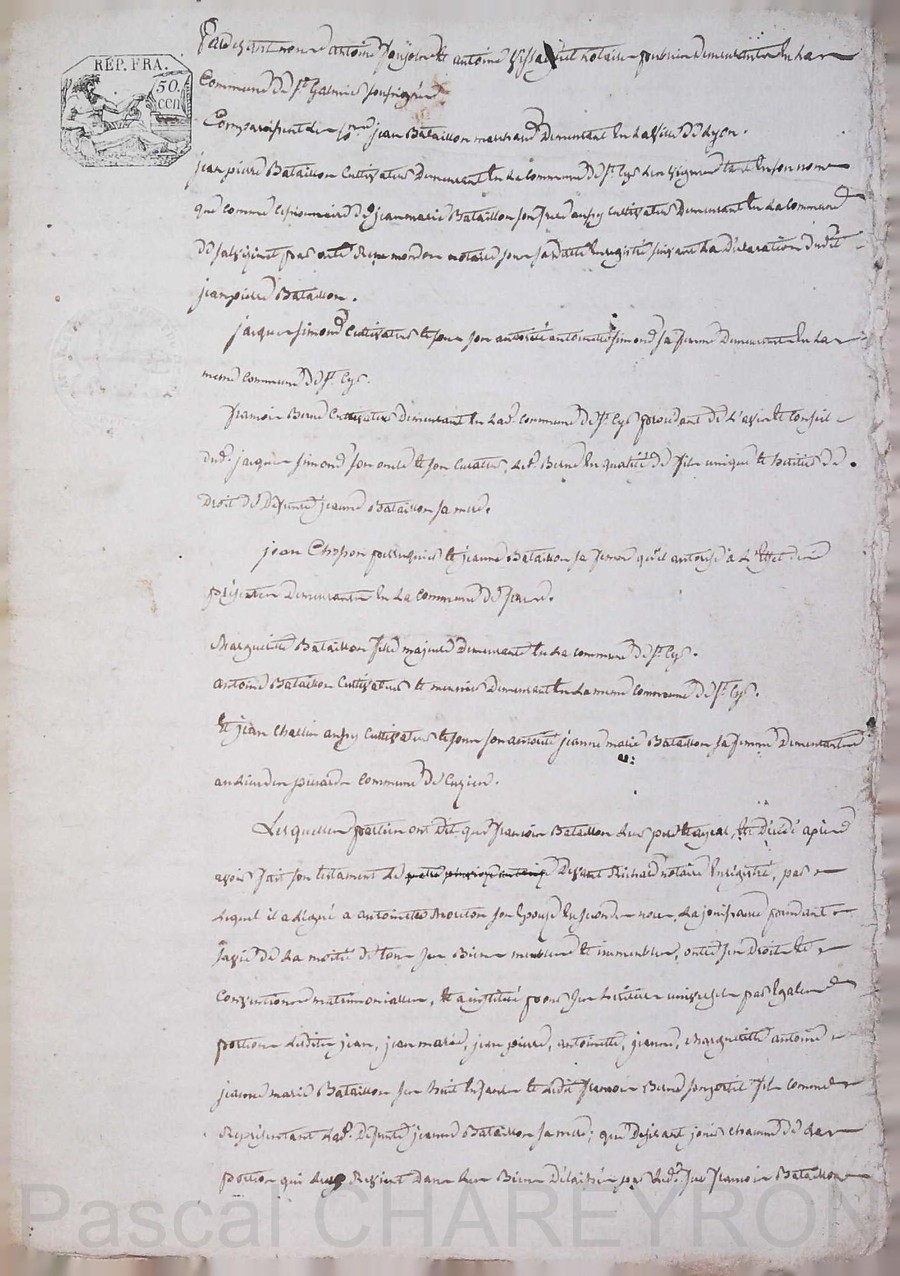 RÉP. FRA.
50.
CCII
Pardevant nous antoine et antoine notaires publics demeurants en la
Commune de st. Galmier soussignés
Comparoissent les srs. jean Bataillon marchand demeurant en la ville de Lyon.
jean pierre Bataillon Cultivateur demeurant en la commune de st. Cyr les vignes tant en son nom
que comme cessionnaire de jean marie Bataillon son frere aussy cultivateur demeurant en la commune
de salvizinet par acte Reçu mondon notaire sous sa datte enregistré suivant la déclaration dudit
jean pierre Bataillon.
jacques simond Cultivateur et sous son autorité antoinette simond sa femme demeurants en la
meme commune de st. Cyr.
francois Berne Cultivateur demeurant en lad. commune de st. Cyr procedant de l'avis et conseil
dud. jacques simond son oncle et son curateur, led. Berne en qualité de fils unique et heritier de
Droit de defunte jeanne Bataillon sa mere.
jean perruquier et jeanne Bataillon sa femme qu'il autorise à l'effet des
présentes demeurants en la commune de
Marguerite Bataillon fille majeure demeurante en la commune de st. Cyr.
antoine Bataillon Cultivateur et demeurant en la meme commune de st. Cyr.
Et jean aussy cultivateur et sous son autorité jeanne marie Bataillon sa femme demeurants
au lieu des commune de Cuzieu.
Lesquelles parties ont dit que francois Bataillon leur pere et ayeul, est décédé après
avoir fait son testament le devant Richard notaire enregistré, par
lequel il a légué a antoinette son épouse en seconde noce, la jouissance pendant
sa vie de la moitié de tous ses Biens meubles et immeubles, outre ses droits et
conventions matrimoniales, et a institué pour ses heritiers universels par égales
portions lesdits jean, jean marie, jean pierre, antoinette, jeanne, Marguerite antoine
jeanne marie Bataillon ses huit enfants et ledit francois Berne son petit fils comme
Représentant lad. défunte jeanne Bataillon sa mere; que desirant jouir chacun de la
portion qui leur Revient dans les Biens délaissés par led. feu francois Bataillon
Pascal CHAREYRON